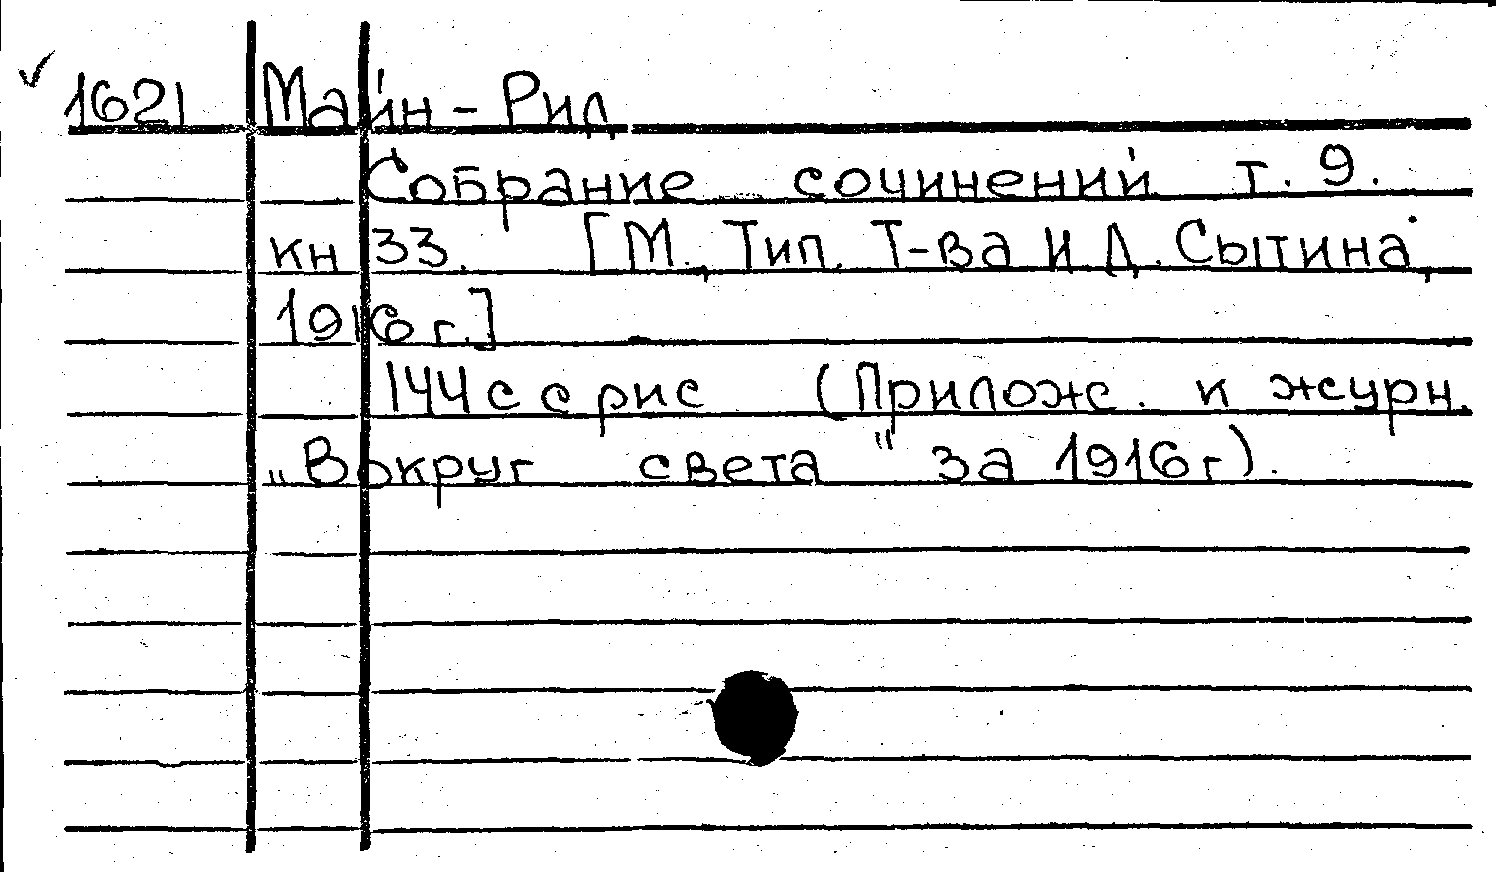 1621 Майн - Рид
Собрание сочинений т. 9.
кн 33. [М., Тип. Т-ва И Д. Сытина,
1916 г.]
144 с с рис (Прилож. к журн.
„Вокруг света" за 1916 г).